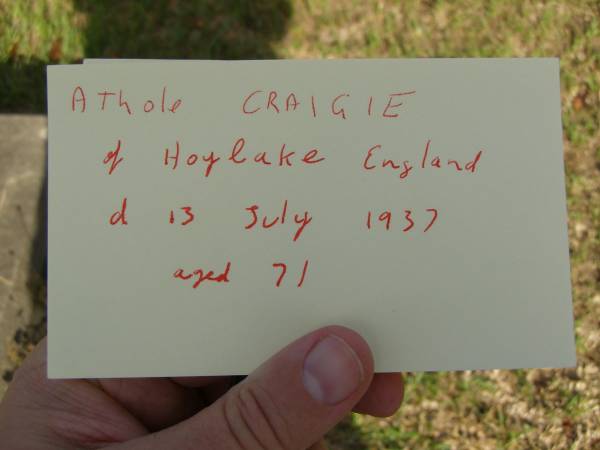 Athole CRAIGIE
of Hoylake England
d 13 July 1937
aged 71